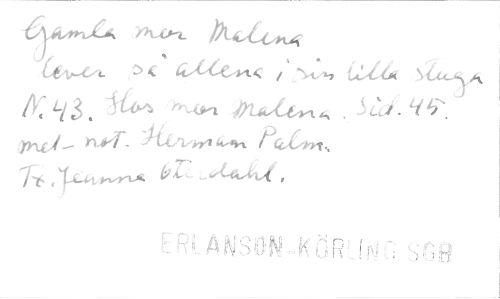 Gamla mor Malena
lever så allena i sin lilla stuga
N.43. Hos mor Malena. Sid. 45.
met-not. Herman Palm.
Tx. Jeanna Oterdahl.
ERLANSON-KÖRLING SGB